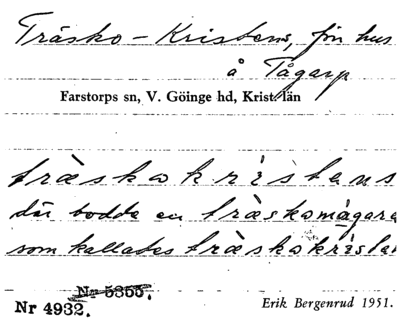 Träsko-Kristens, fon hus
å Tågarp
Farstorps sn, V. Göinge hd, Krist. län
träskokristans
där bodde en träskomågare
som kallades träskokrista
Nr 5355.
Nr 4932. Erik Bergenrud 1951.